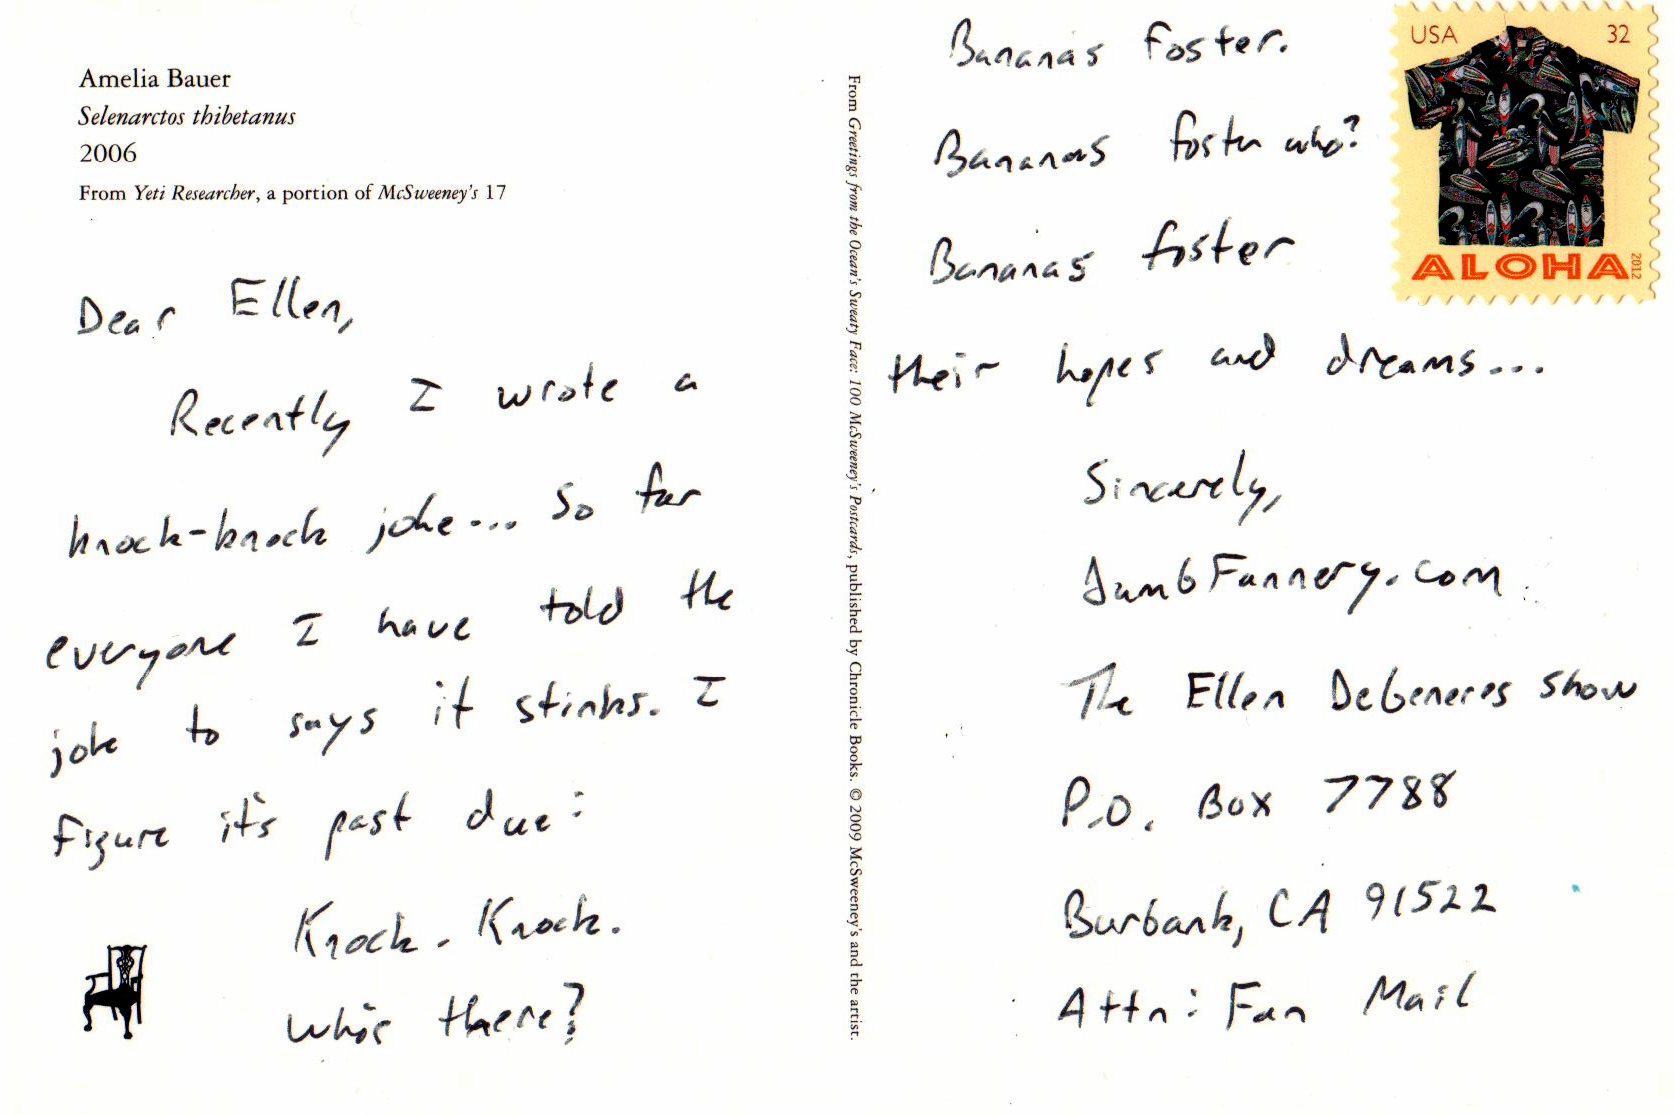 Amelia Bauer
Selenarctos thibetanus
2006
From Yeti Researcher, a portion of McSweeney's 17
Dear Ellen,
Recently I wrote a
knock-knock joke... So far
everyone I have told the
joke to says it stinks. I
figure it's past due:
Knock. Knock.
Who's there?
From Greetings from the Ocean's Sweaty Face: 100 McSweeney's Postcards, published by Chronicle Books. © 2009 McSweeney's and the artist.
USA 32
ALOHA
2012
Bananas Foster.
Bananas foster who?
Bananas foster
their hopes and dreams...
Sincerely,
DumbFannery.com
The Ellen DeGeneres Show
P.O. Box 7788
Burbank, CA 91522
Attn: Fan Mail